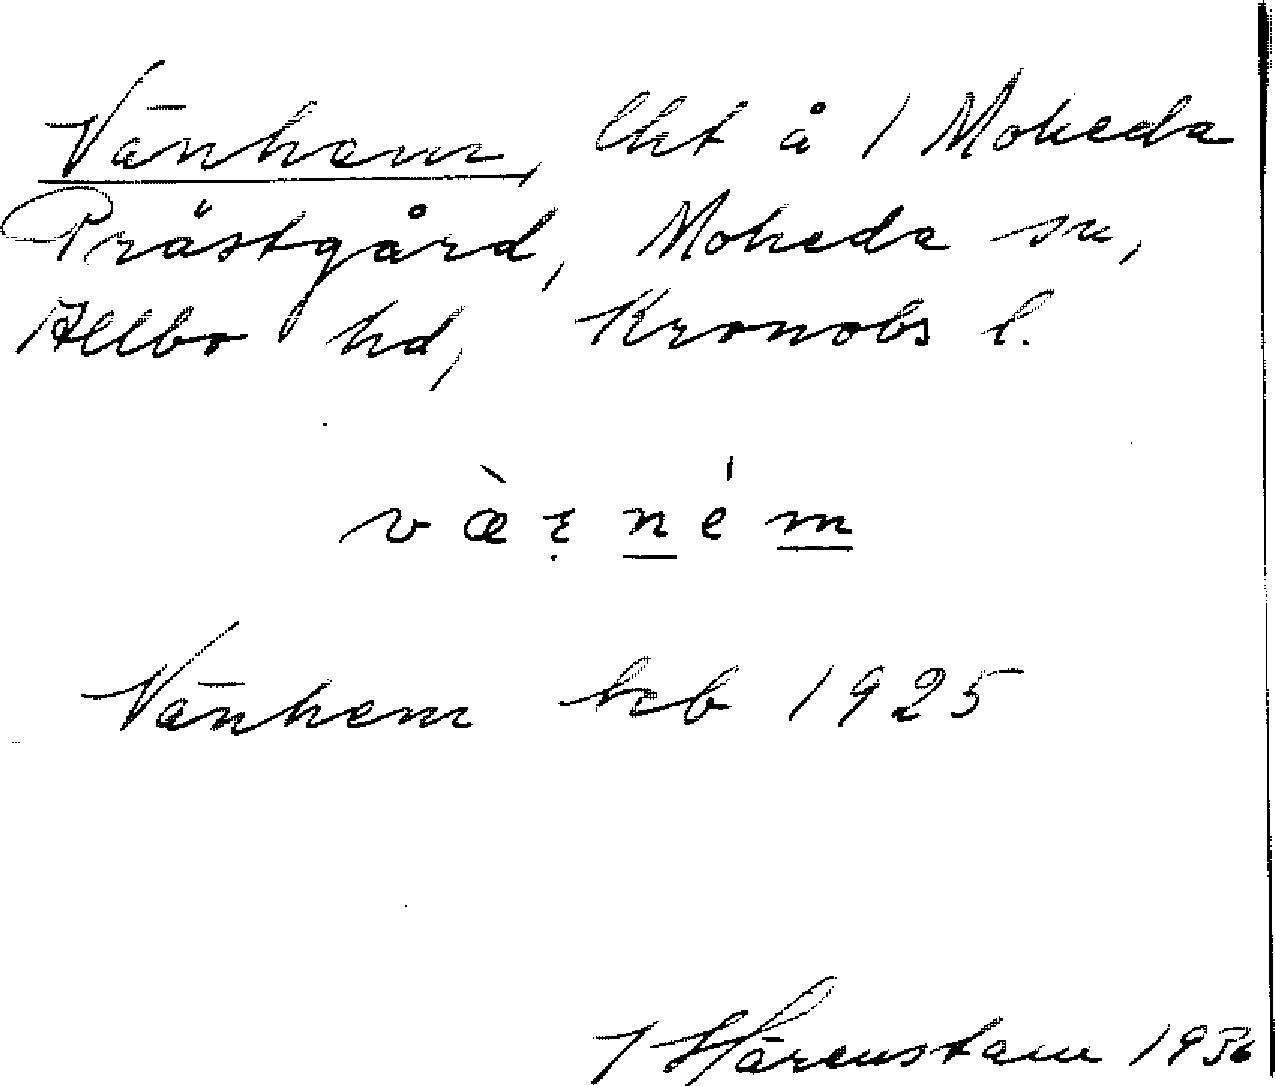 Vänhem, lht å 1 Moheda
Prästgård, Moheda sn,
Allbo hd, Kronobs l.
Vänhem kb 1925
J Hårenstam 1936